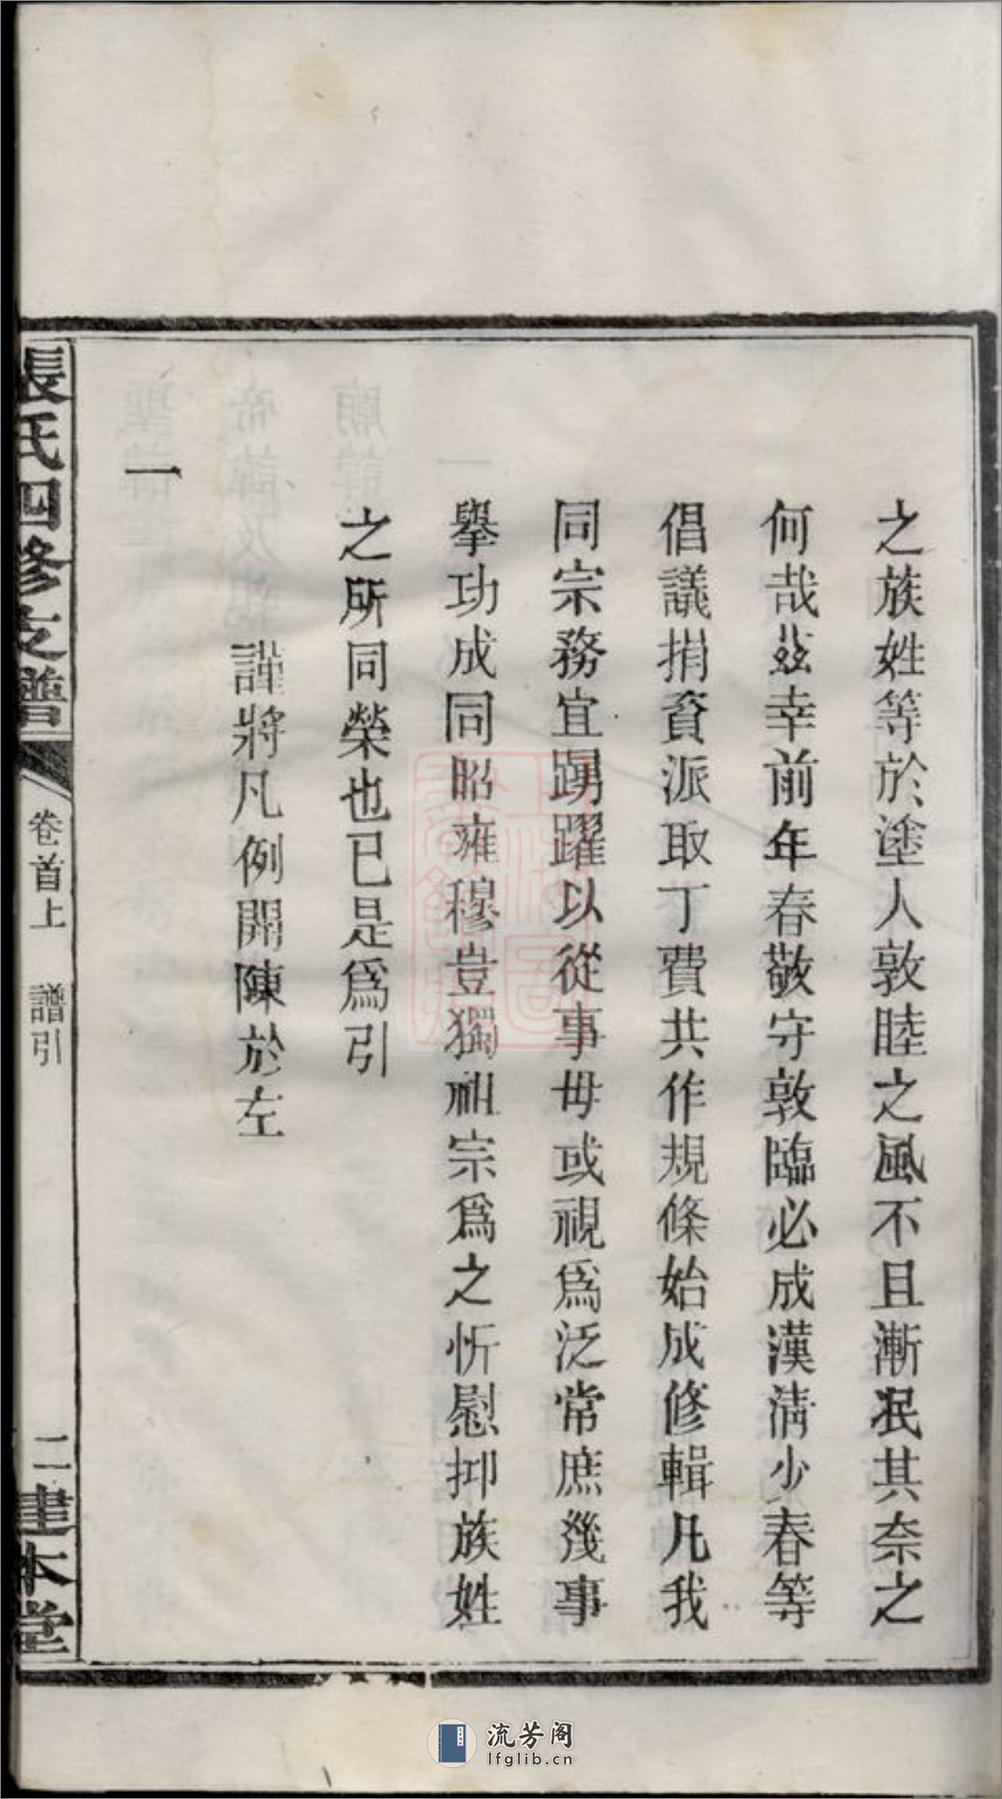 之族姓等於塗人敦睦之風不且漸泯其奈之
何哉茲幸前年春敬守敦臨必成漢淸少春等
倡議捐資派取丁費共作規條始成修輯凡我
同宗務宜踴躍以從事毋或視爲泛常庶幾事
擧功成同昭雍穆豈獨祖宗爲之忻慰抑族姓
之所同榮也已是爲引
謹將凡例開陳於左
一
張氏四修支譜
卷首上 譜引
二
建本堂
流芳阁
lfglib.cn